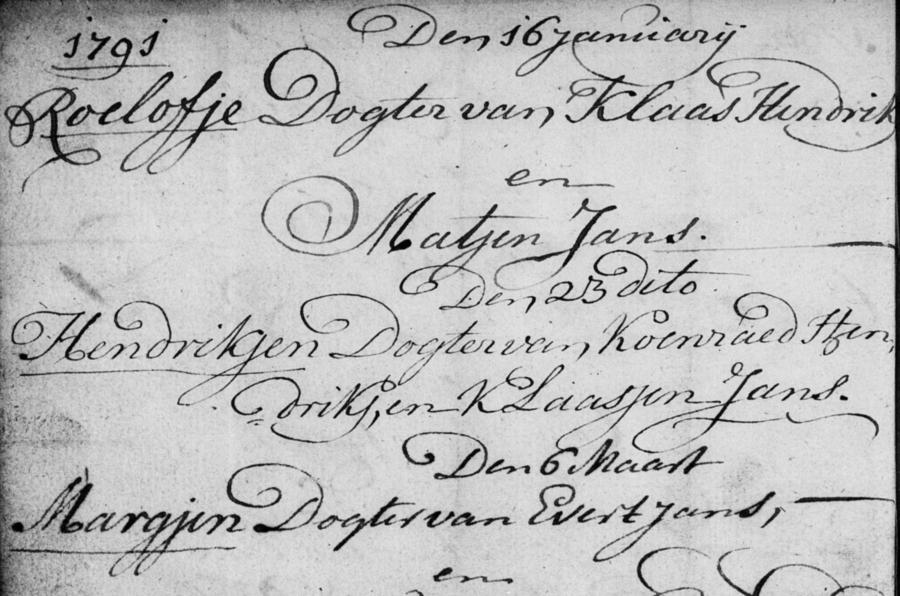 1791 Den 16 January
Roelofje Dogter van Klaas Hendrik
en
Matjen Jans.
Den 23 dito
Hendrikjen Dogter van Koenraed Hen,
„driks, en KLaasjen Jans.
Den 6 Maart
Margjen Dogter van Evert Jans,
en